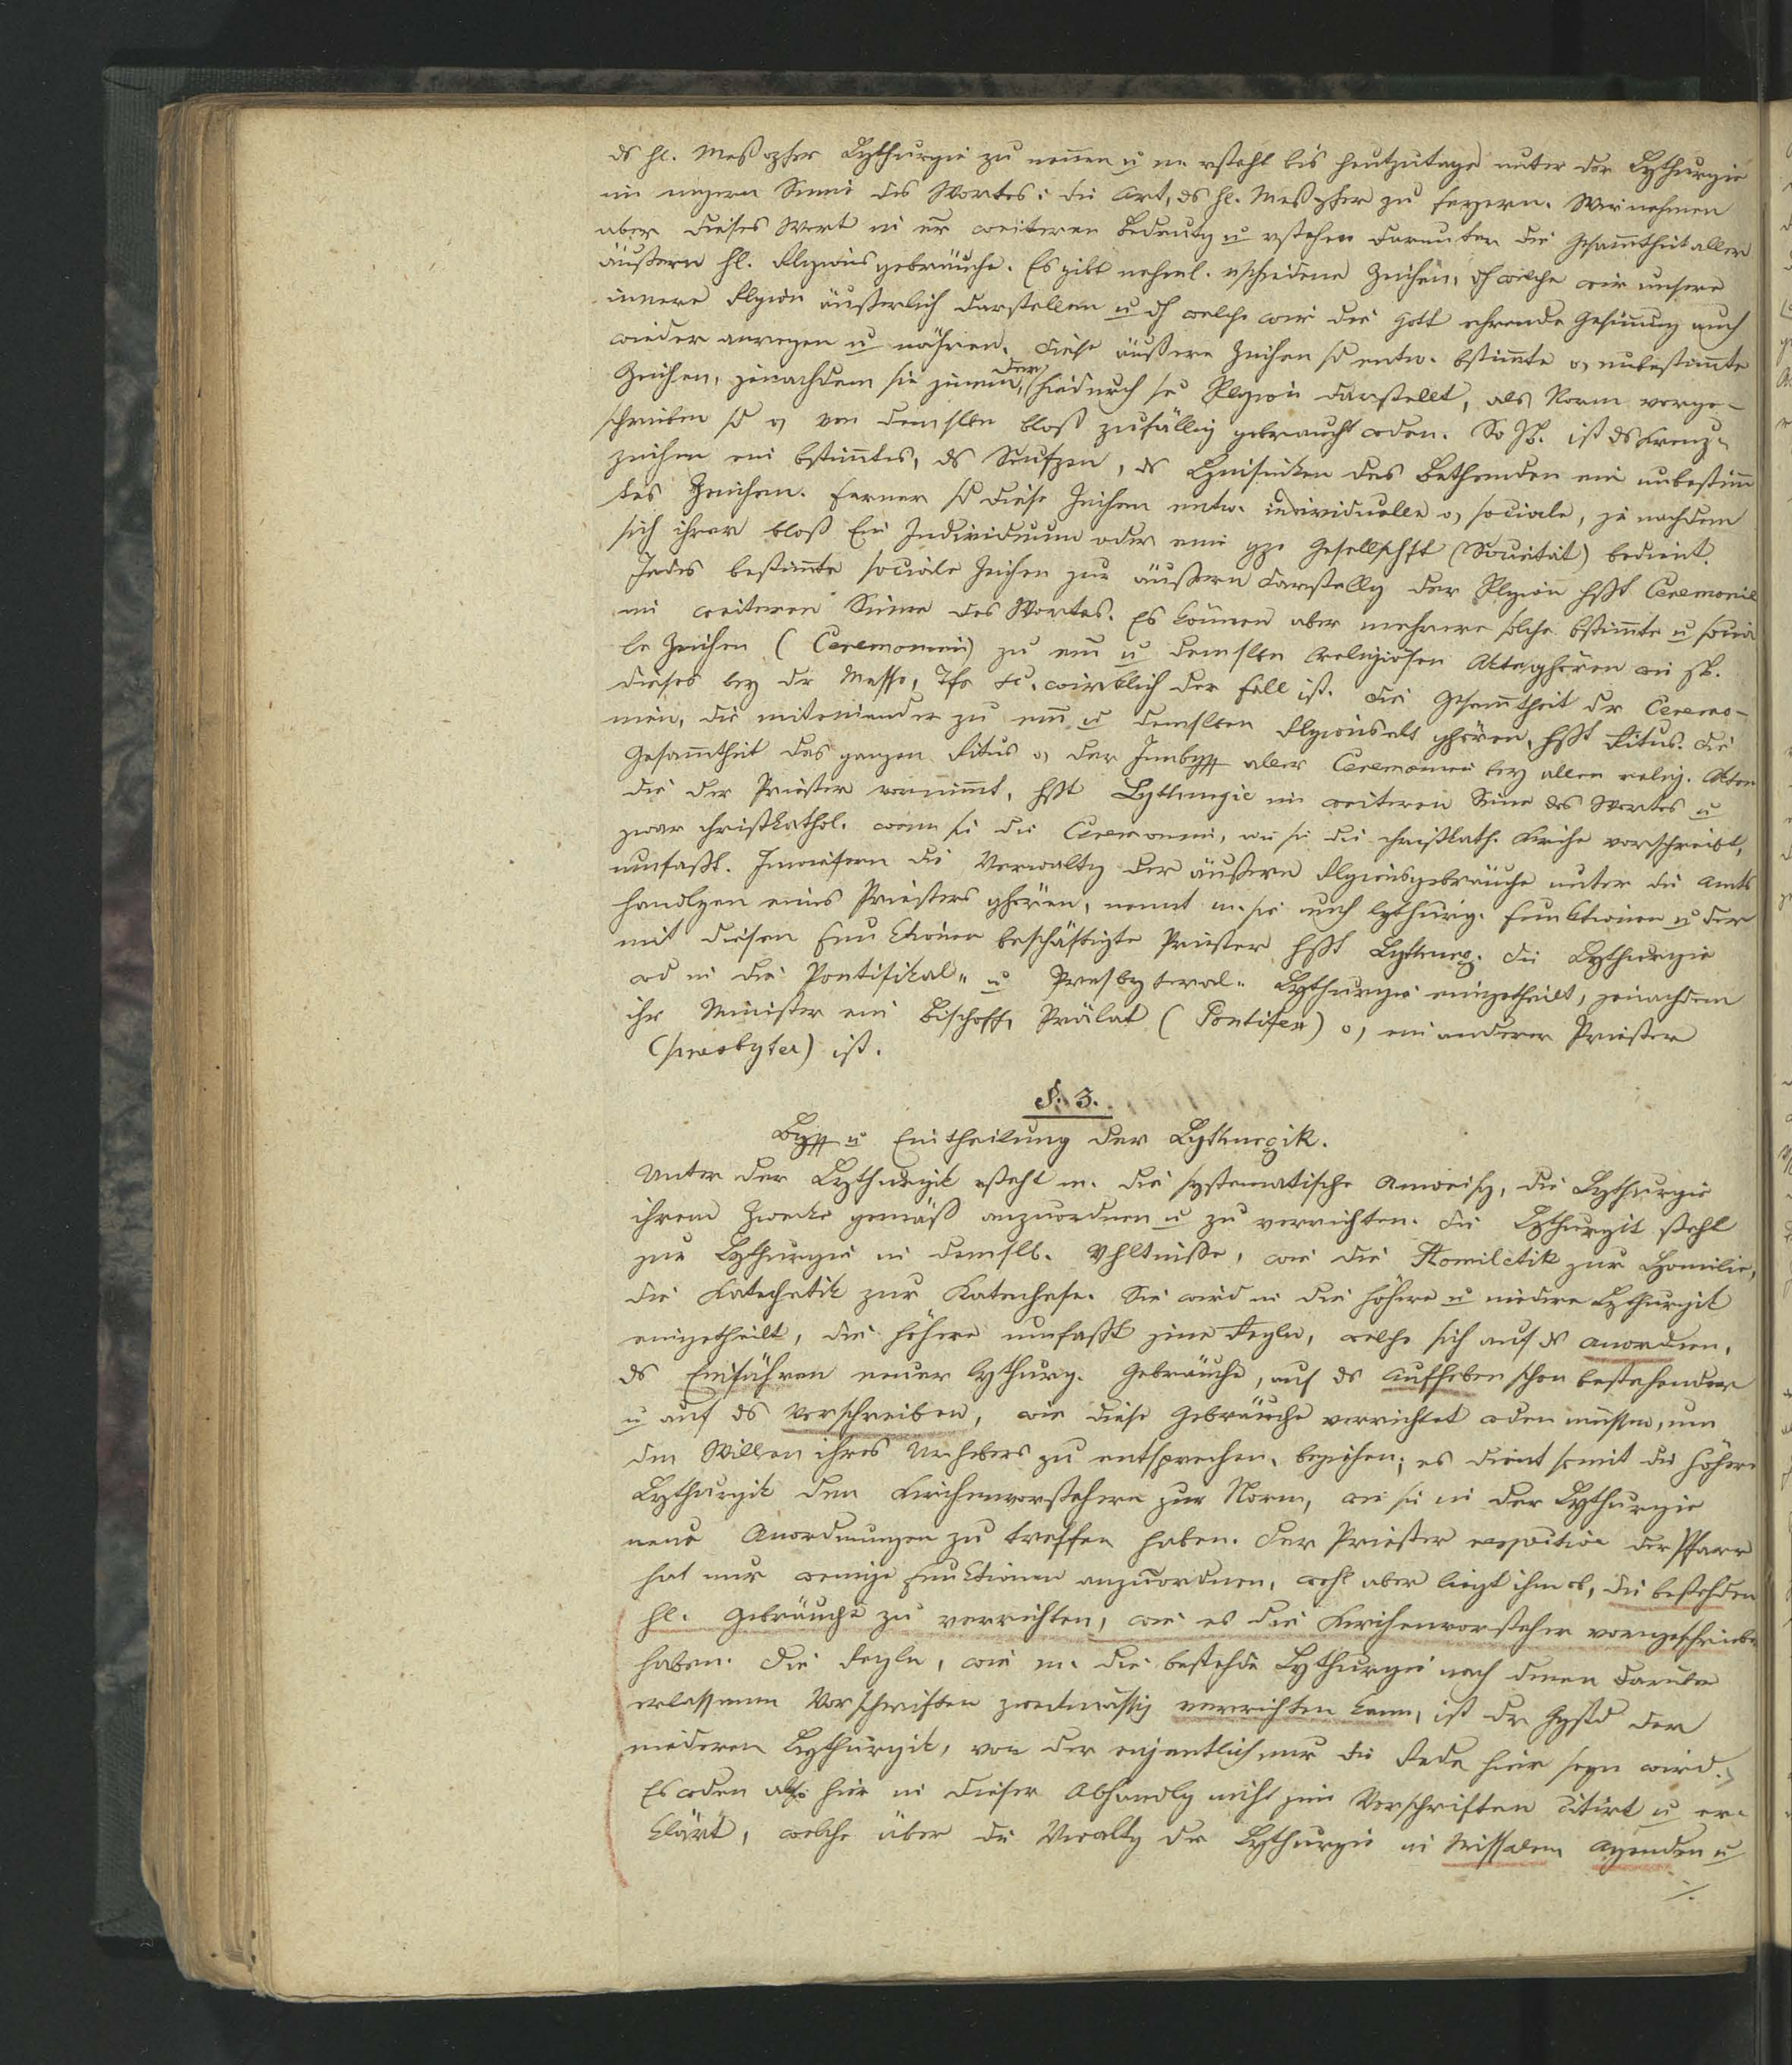 ds hl. Meßopfer Lythurgie zu nennen u m. vsteht bis heutzutage unter der Lythurgie
im engern Sinne des Wortes: die Art, ds hl. Meßopfer zu feyern. Wir nehmen
aber dieses Wort in er weiteren Bedeutg u vstehen darunter die Gesam̅theit aller
äußern hl. Rlgionsgebräuche. Es gibt nehml. vschiedene Zeichen, dh welche wir unsere
innere Rlgion äußerlich darstellen u dh welche wir die Gott ehrende Gesinnung auch
wieder anregen u nähren. Diese äußere Zeichen sd entw. bstim̅te o, unbestim̅te
Zeichen, jenachdem sie jenem, der hiedurch se Rlgion darstellt, als Norm vorge-
schrieben sd o, von demslben bloß zufällig gebraucht wden. So zB. ist ds Kreuz-
zeichen ein bstim̅tes, ds Seufzen, ds Hinsinken des Bethenden ein unbestim̅
tes Zeichen. Ferner sd diese Zeichen entw. individuelle o, sociale, je nachdem
sich ihrer bloß Ein Individuum oder eine gze Gesellschft (Societät) bedient.
Jedes bestim̅te sociale Zeichen zur äußern Darstellg der Rlgion hßt Ceremonie
im weiteren Sinne des Wortes. Es können aber mehrere solche bstim̅te u socia
le Zeichen (Ceremonien) zu em u demslben religiösen Akte ghören wie zB.
dieses bey dr Messe, Tfe etc. wirklich der Fall ist. Die Gesam̅theit dr Ceremo-
nien, die miteinander zu em u demslben Rlgionsakt ghören, hßt Ritus. Die
Gesam̅theit des ganzen Ritus o, der Innbgff aller Ceremonien bey allen relig. Akten
die der Priester vornim̅t, hßt Lythurgie im weiteren Sinne des Wortes u
zwar christkathol. wenn sie die Ceremonien, wie sie die christkath. Kirche vorschreibt,
umfaßt. Inwiefern die Verwaltg der äußern Rlgionsgebräuche unter die Amts
handlgen eines Priesters ghören, nennt m. sie auch lythurg. Funktionen u der
mit diesen Funktionen beschäftigte Priester hßt Lythurg. Die Lythurgie
wd in die Pontifikal- u Presbyteral- Lythurgie eingetheilt, jenachdem
ihr Minister ein Bischoff, Prälat (Pontifex) o, ein anderer Priester
(presbyter) ist.
§. 3.
Bgff u Eintheilung der Lythurgik.
Unter der Lythurgik vsteht m. die systematische Anweisg, die Lythurgie
ihrem Zwecke gemäß anzuordnen u zu verrichten. Die Lythurgik steht
zur Lythurgie in demslb. Vhltnisse, wie die Homiletik zur Homilie,
die Katechetik zur Katechese. Sie wird in die höhere u niedere Lythurgik
eingetheilt, die höhere umfaßt jene Regln, welche sich auf ds Anordnen,
ds Einführen neuer lythurg. Gebräuche, auf ds Aufheben schon bestehender
u auf ds Vorschreiben, wie diese Gebräuche verrichtet wden müssen, um
den Willen ihres Urhebers zu entsprechen, beziehen; es dient somit die höhere
Lythurgik den Kirchenvorstehern zur Norm, wie sie in der Lythurgie
neue Anordnungen zu treffen haben. Der Priester respective der Pfarr
hat nur wenige Funktionen anzuordnen, wohl aber liegt ihm ob, die bestehden
hl. Gebräuche zu verrichten, wie es die Kirchenvorsteher vorgeschrieben
haben. Die Regln, wie m. die bestehde Lythurgie nach denen darüber
erlassenen Vorschriften zweckmässig verrichten kann, ist dr Ggstd der
niederen Lythurgik, von der eigentlich nur die Rede hier seyn wird.
Es wden also hier in dieser Abhandlg nicht jene Vorschriften citirt u er-
klärt, welche über die Vwaltg der Lythurgie in Missalen Agenden u
./.